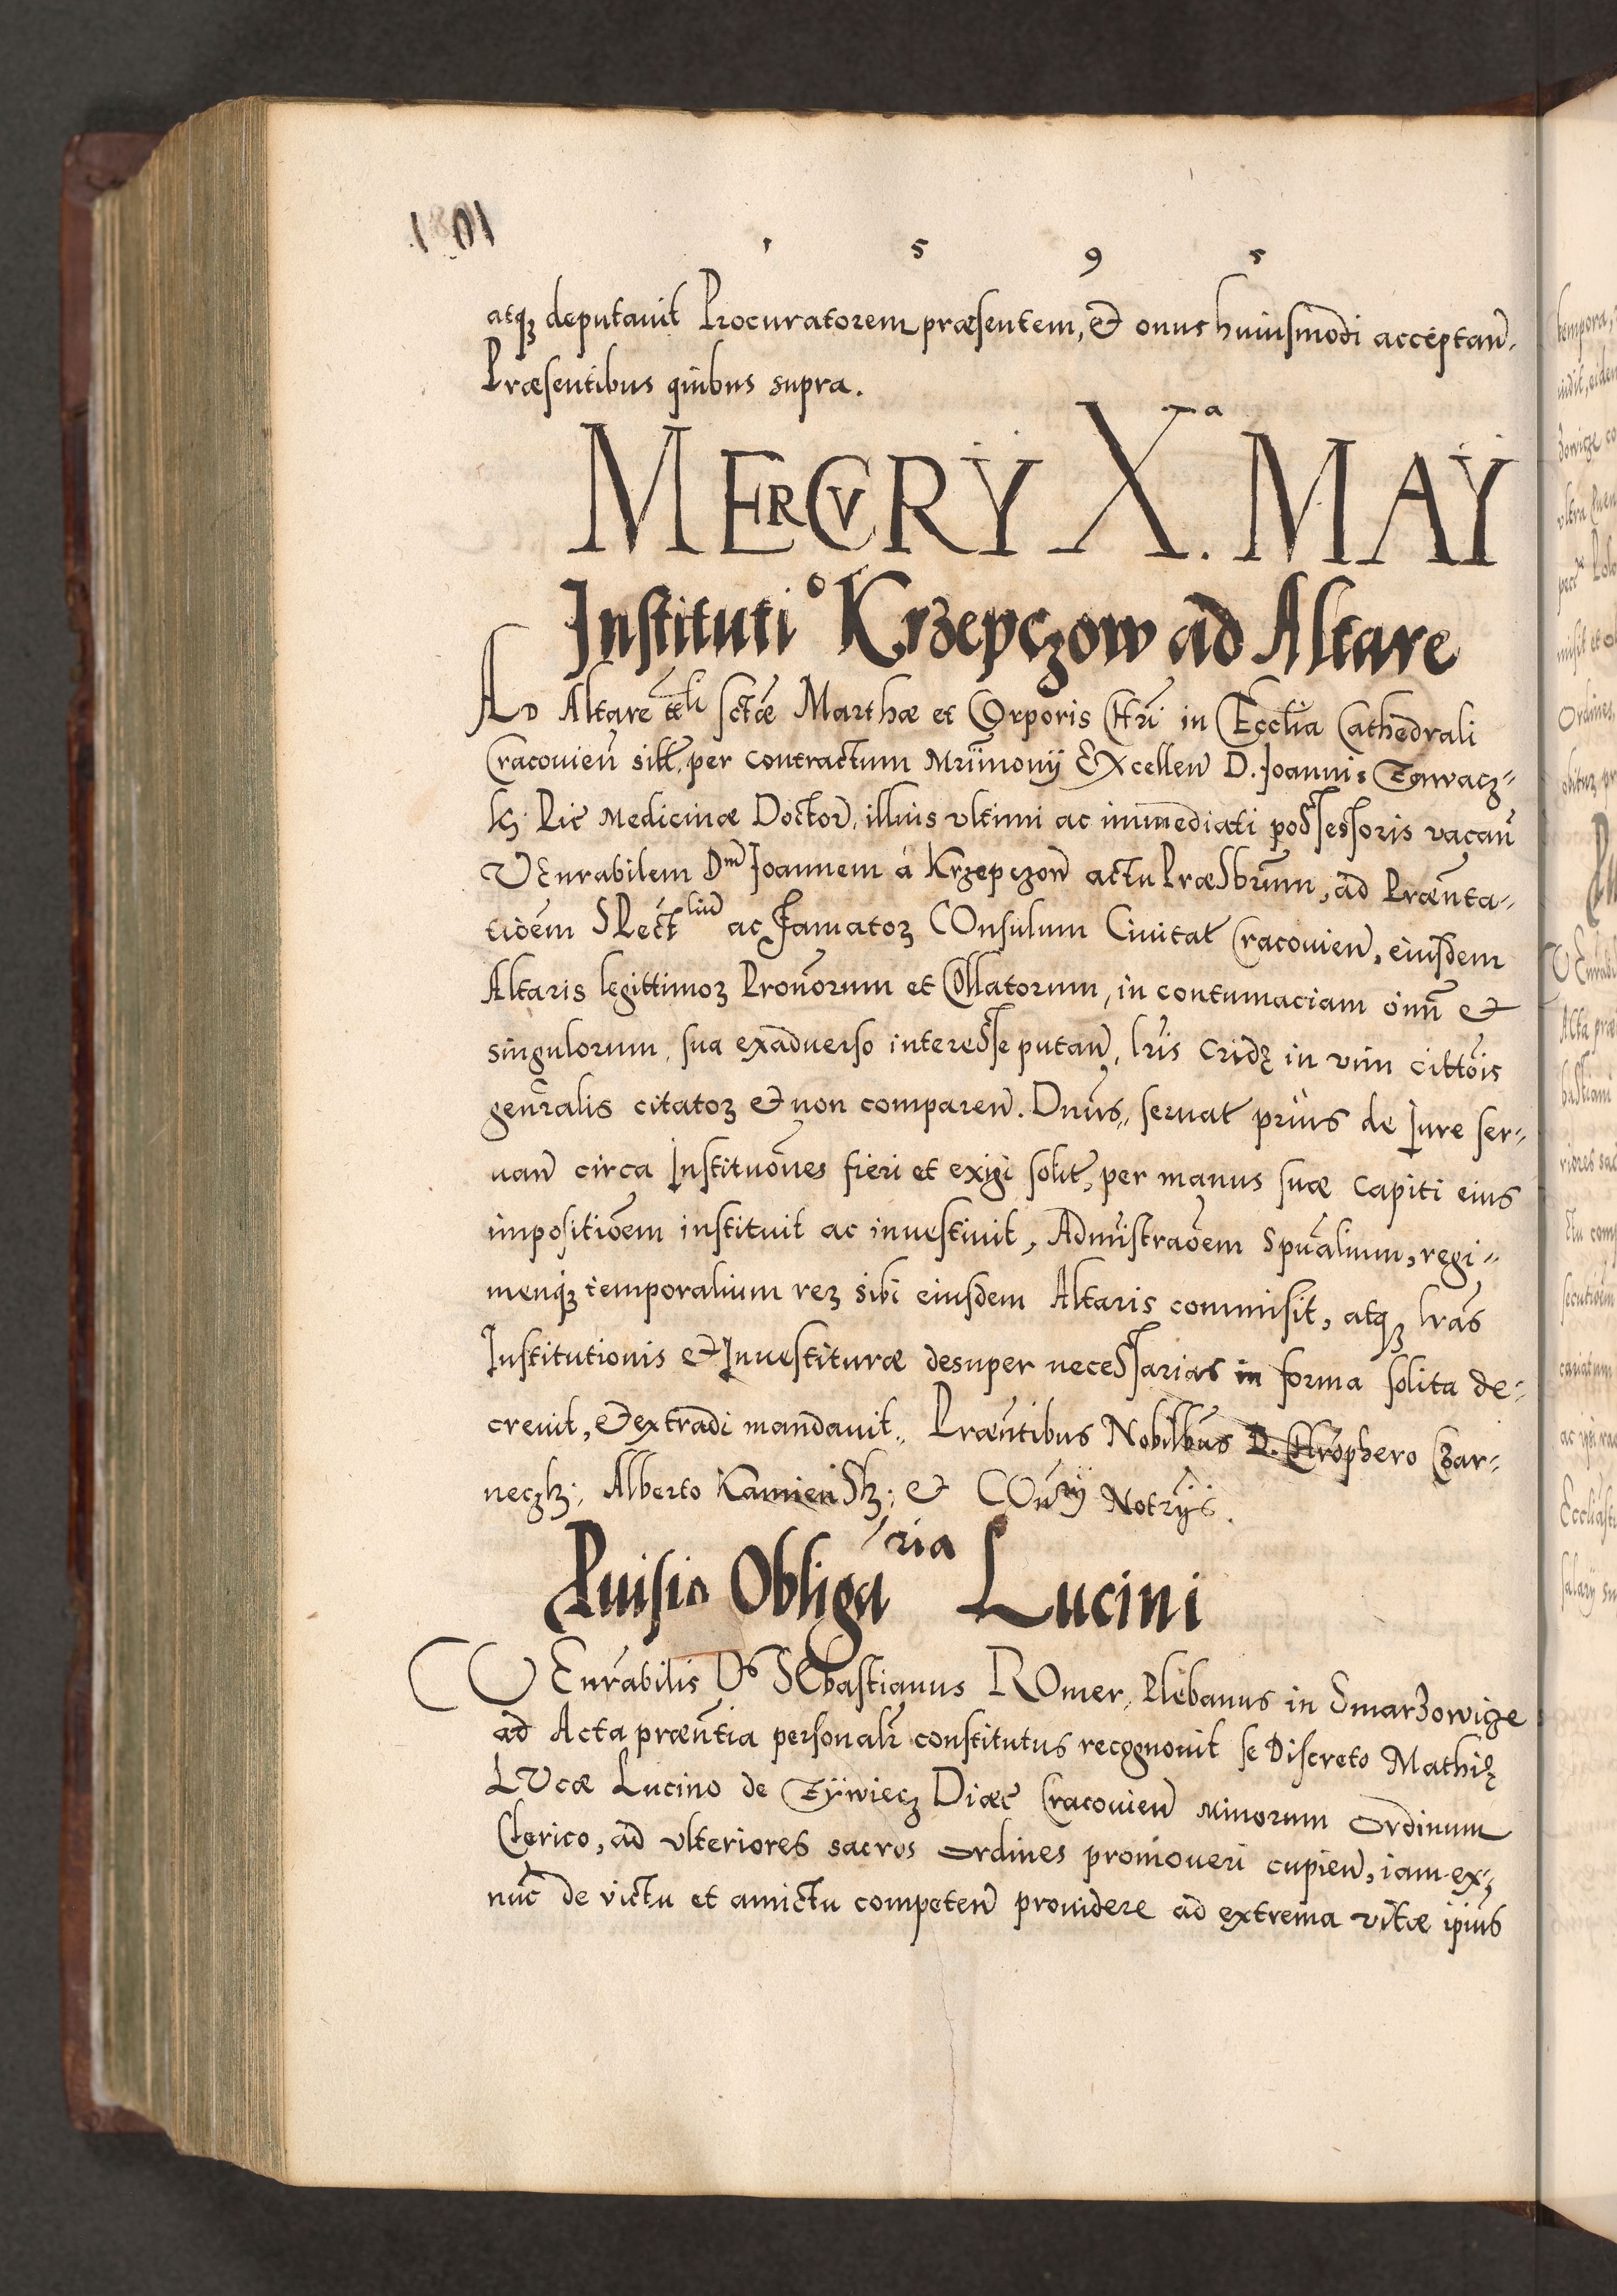 1 5 9 5
atq₃ deputauit Procuratorem præsentem, & onus huiusmodi acceptan̄.
Præsentibus quibus supra.
MERCVRŸ Xᵃ. MAŸ
Institutiº Krzepczow ad Altare
AD Altare ttli sctæ Marthæ et Corporis Chri in Ecclia Cathedrali
Cracouien̄ sitt. per contractum Mr̄imonij EXcellen̄ D. Joannis
Medicinæ Doctor̄, illius vltimi ac immediati possessoris vacan̄
VEnrabilem Dnm̄ Joannem à Krzepczow actu Præsbrum, ad Præn̄ta-
tiōem SPect ac Famatoꝝ COnsulum Ciuitat̄ Cracouien̄, eiusdem
Altaris legittimoꝝ Pronōrum et Collatorum, in contumaciam om̄n̄ &
singulorum, sua exaduerso interesse putan̄, lris cridę in vim cittōis
gen̄ralis citatoꝝ & non comparen̄. Dnūs,, seruat̄ prius de Iure ser-
uan̄ circa Institutiōnes fieri et exigi solit̄, per manus suæ capiti eius
impositiōem instituit ac inuestiuit, Admīstraōem Spūalium, regi-
menq₃ temporalium reꝝ sibi eiusdem Altaris commisit, atq₃ lrās
Institutionis & Inuestituræ desuper necessarias in forma solita de-
creuit, & extradi mandauit,, Præn̄tibus Nobilibus D. Chrophero Czar-
neczk: Alberto Kamiensk: & Notrijs.
Puisio Obligaʳⁱᵃ Lucini
VEnr̄abilis Ds SEbastianus ROmer, Plebanus in Smarzowicze
ad Acta præn̄tia personalr̄ constitutus recognouit se Discreto Mathię
LVcæ Lucino de Żÿwiecz Diæc̄ Cracouien̄ Minorum Ordinum
Clerico, ad vlteriores sacros ordines promoueri cupien̄, iam ex-
nūc de victu et amictu competen̄ prouidere ad extrema vitæ ipius